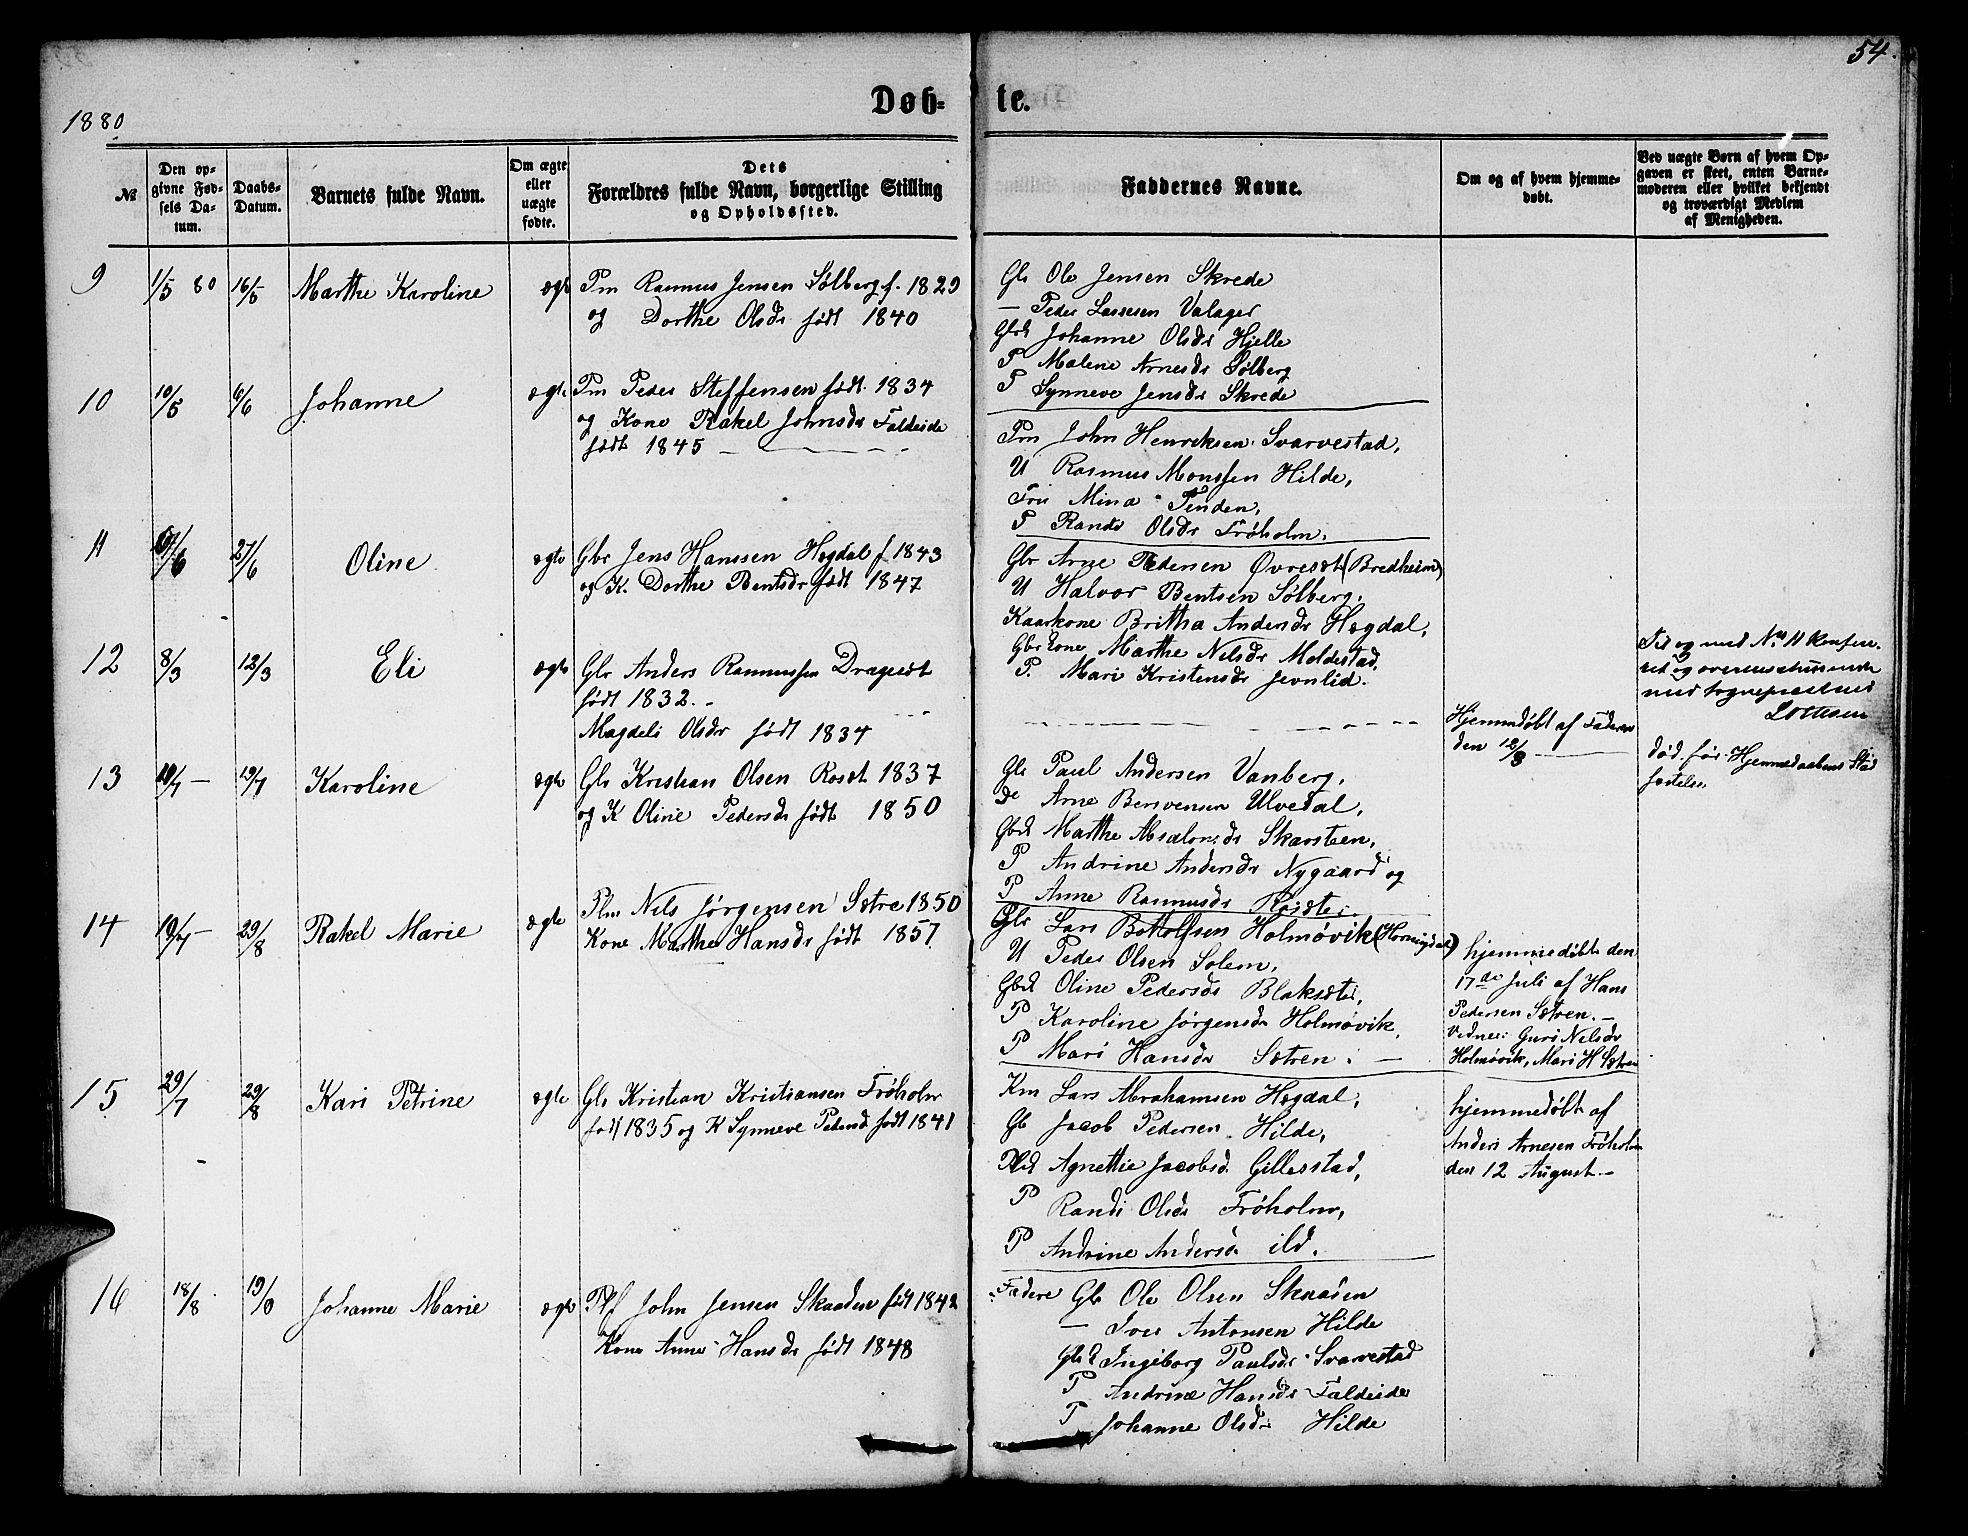 54.
1880
Døb- te.
№
Den opgivne Fødsels Datum.
Daabs-Datum.
Barnets fulde Navn.
Om ægte eller uægte fødte.
Dets Forældres fulde Navn, borgerlige Stilling og Opholdssted.
Faddernes Navne.
Om og af hvem hjemmedøbt.
Ved uægte Børn af hvem Opgaven er skeet, enten Barnemoderen eller hvilket bekjendt og troværdigt Medlem af Menigheden.
9 1/5 80 16/5 Marthe Karoline ægte
Pm Rasmus Jensen Sølberg f. 1829
og Dorthe Olsdr født 1840
Gbr Ole Jensen Skrede
— Peder Lassesen Valager
Gbrk Johanne Olsdr Hjelle
P Malene Arnesdr Sølberg
P Synneve Jensdr Skrede
10 10/5 6/6 Johanne ægte
Pm Peder Steffensen født 1834
og Kone Rakel Johnsdr Faldeide
født 1845
Pm John Henriksen Svarvestad,
U Rasmus Monssen Hilde,
Fru Mina Tenden,
P Rande Olsdr Frøholm.
11 27/6 Oline ægte
Gbr Jens Hanssen Hegdal f 1843
og K. Dorthe Bentsdr født 1847
Gbr Arne Pedersen Øvreset (Bredheim)
U Halvor Bentsen Sølberg,
Kaarkone Britha Andersdr Hegdal,
Gbr kone Marthe Nilsdr Meldestad,
P. Mari Kristensdr Jevnlid.
12 8/3 12/3 Eli ægte
Gbr Anders Rasmussen Dragesæt
født 1832. -
Magdeli Olsdr født 1834
Hjemmedøbt af Faderen
den 12/3
Til og med No 11 konfe-
red og overensstemmende
med Sognepræstens
død før Hjemmedaabens Stad
fæstelse
13 10/7 — 19/7 Karoline ægte
Gbr Kristian Olsen Roset 1837
og K Oline Pedersdr født 1850
Gbr Paul Andersen Vanberg,
do Arne Bensvensen Ulvedal,
Gbrk Marthe Absalonsdr Skarsteen,
P Andrine Andersdr Nygaard og
P Anne Rasmusdr
14 29/8 Rakel Marie ægte
Plm Nils Jørgensen Sætre 1850
Kone Marthe Hansdr født 1857
Gbr Lars Bottolfsen Holmøvik (Hornindal)
U Peder Olsen Solem,
Gbrk Oline Pedersdr Blaksæter,
P Karoline Jørgensdr Holmøvik,
P Mari Hansdr Sætren. —
hjemmedøbt den
17de Juli af Hans
Pedersen Sætren. —
Vidner: Guri Nilsdr
Holmøvik, Mari H Sætren
15 29/7 29/8 Kari Petrine ægte
Gbr Kristian Kristiansen Frøholm
født 1835 og K Synneve Pedersdr født 1841
Km Lars Abrahamsen Hegdal,
Gb Jacob Pedersen Hilde,
Agnethe Jacobsd. Gillesstad,
P Randi Olsdr Frøholm,
P Andrine Andersdr ibd.
hjemmedøbt af
Anders Arnesen Frøholm
den 12 August. —
16 18/8 Johanne Marie ægte
Plf John Jensen Skaaden født 1842
Kone Anne Hansdr født 1848
Faddere Gbr Ole Olsen Skaaden
— Iver Antonsen Hilde
Gbrk Ingeborg Paulsdr Svarvestad
P Andrine Hansdr Faldeide
P Johanne Olsdr Hilde